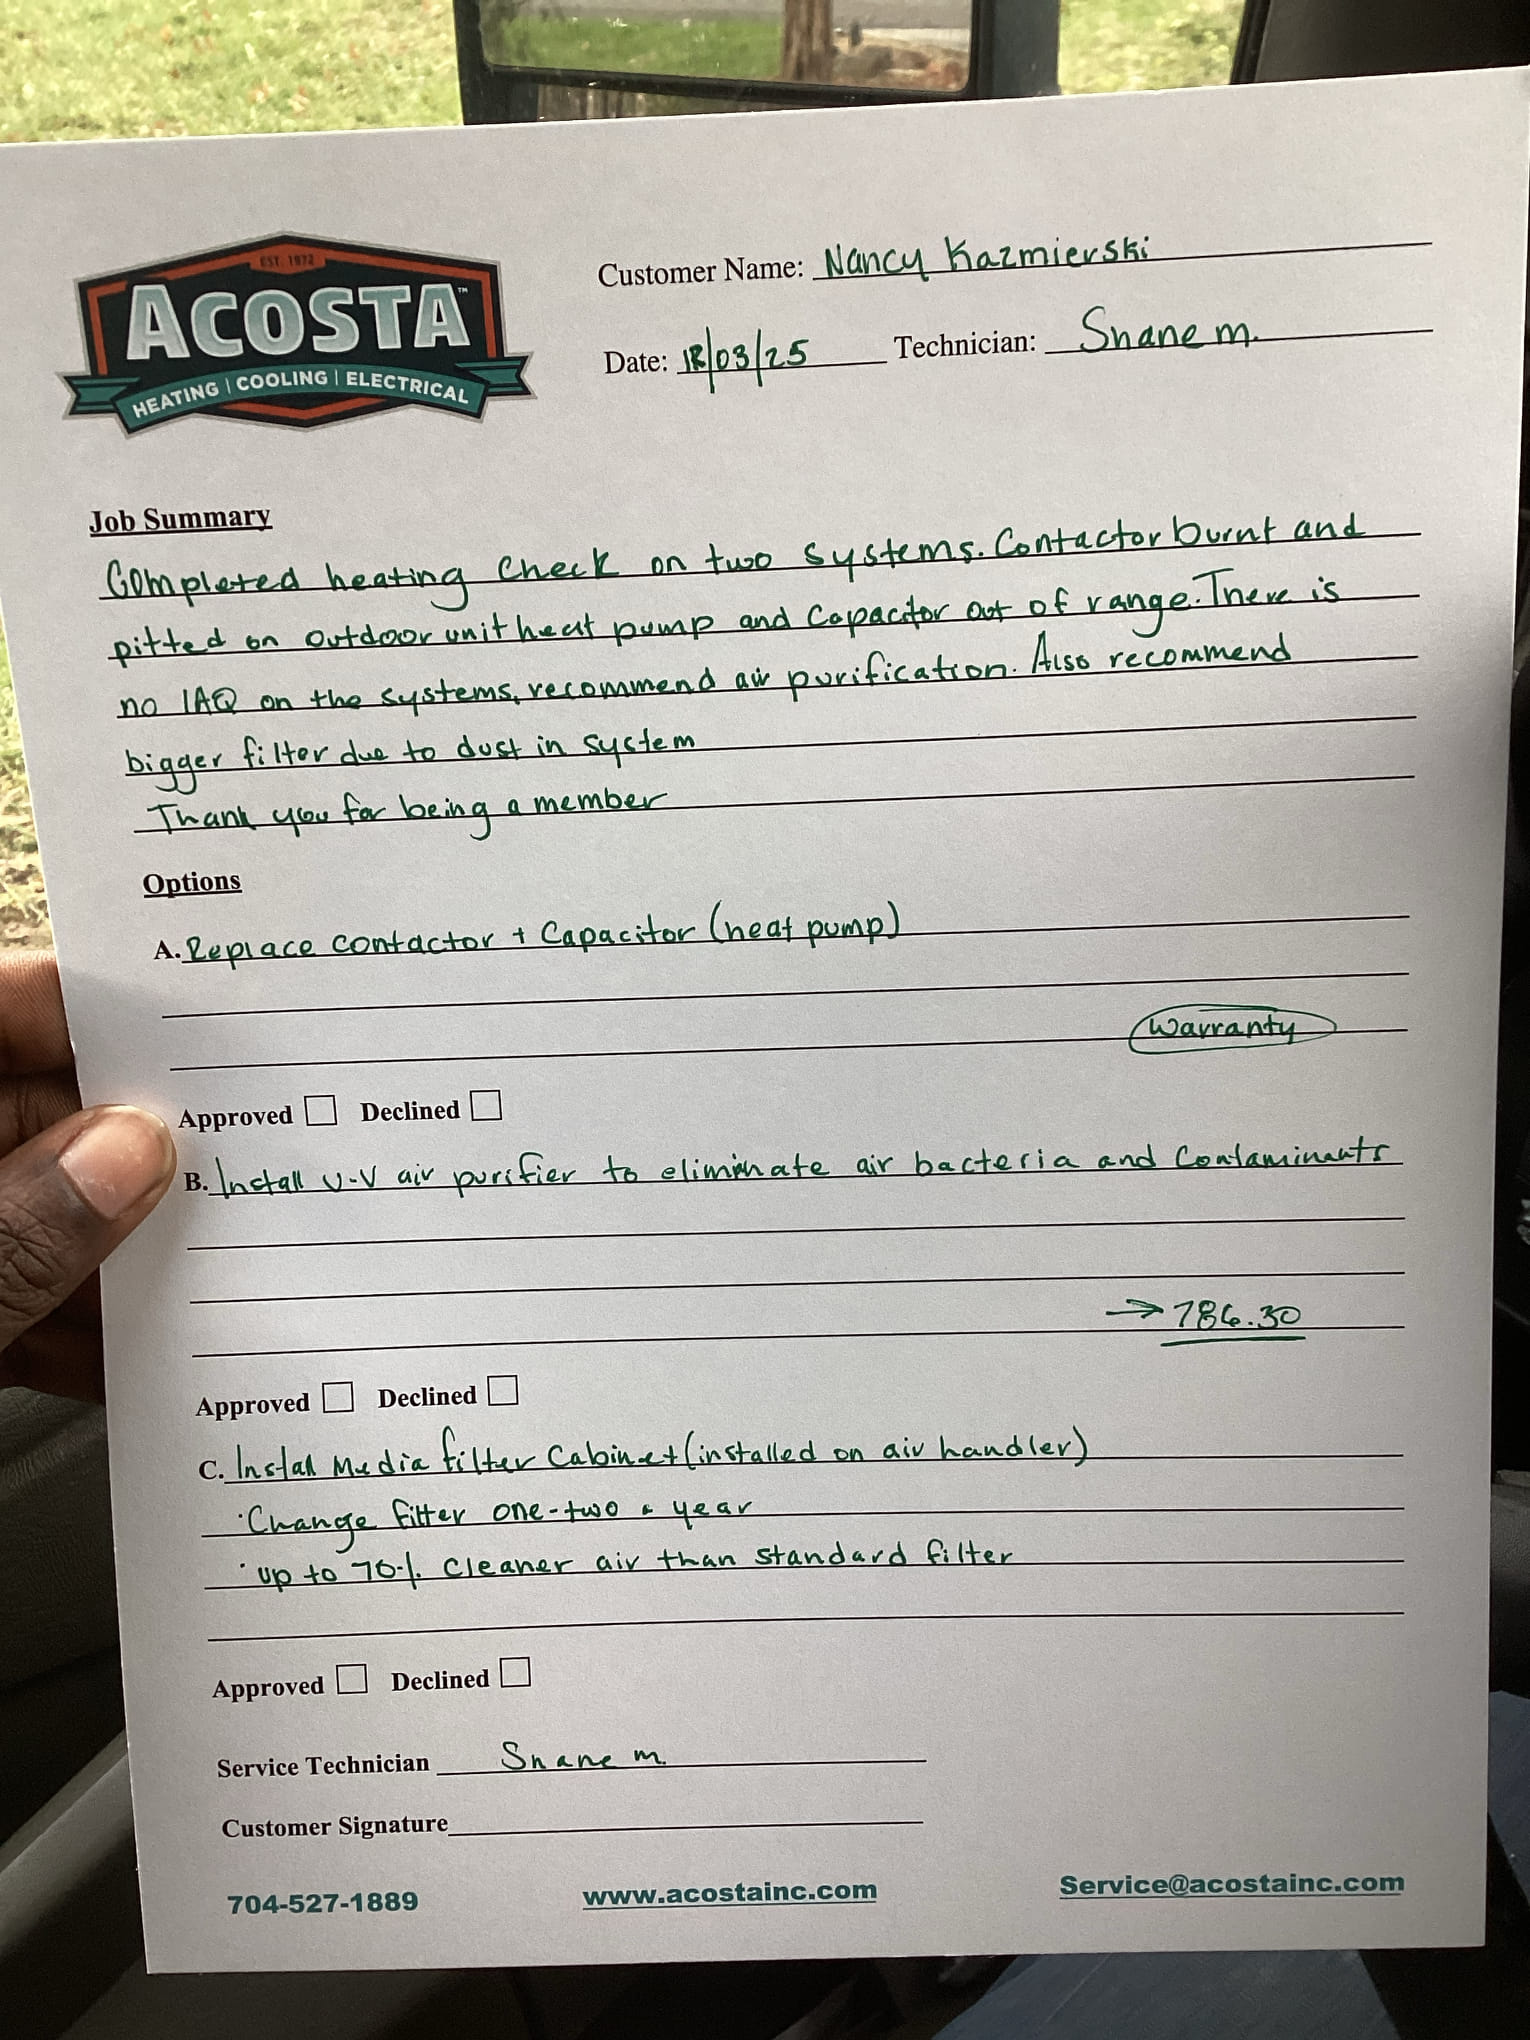 EST. 1972
ACOSTA™
HEATING | COOLING | ELECTRICAL
Customer Name: Nancy Kazmierski
Date: 12/03/25 Technician: Shane M.
Job Summary
Completed heating check on two systems. Contactor burnt and
pitted on outdoor unit heat pump and Capacitor out of range. There is
no IAQ on the systems, recommend air purification. Also recommend
bigger filter due to dust in system
Thank you for being a member
Options
A. Replace contactor + Capacitor (heat pump)
Warranty
Approved Declined
B. Install U-V air purifier to eliminate air bacteria and Contaminants
→ 786.30
Approved Declined
C. Install Media filter Cabinet (installed on air handler)
· Change filter one-two a year
· up to 70% cleaner air than standard filter
Approved Declined
Service Technician Shane M.
Customer Signature
704-527-1889 www.acostainc.com Service@acostainc.com